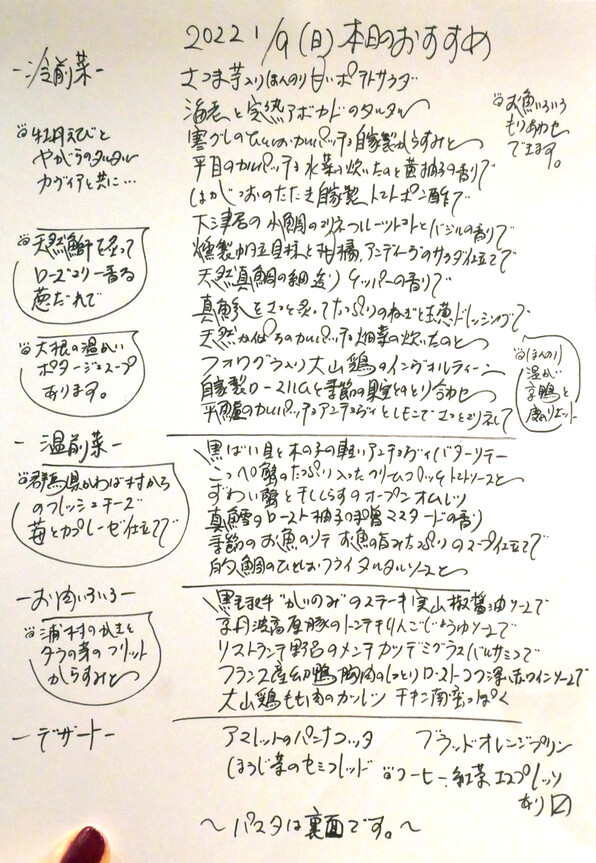 2022 1/9(日)本日のおすすめ
-冷前菜-
さつま芋入りほんのり甘いポテトサラダ
海老と完熟アボカドのタルタル
寒ブリのカルパッチョ自家製からすみと
平目のカルパッチョ水菜の炊いたのと黄柚子の香りで
はがつおのたたき自家製トマトポン酢で
大津居の小鯛のマリネフルーツトマトとバジルの香りで
燻製帆立貝柱と柑橘、アンディーヴのサラダ仕立てで
天然真鯛の細造りケッパーの香りで
真鯵をさっと炙ってたっぷりのねぎと玉葱ドレッシングで
天然かんぱちのカルパッチョ畑菜の炊いたのと
フォワグラ入り大山鶏のインヴォルティーニ
自家製ロースハムと季節の果実とのとり合わせ
平鱸のカルパッチョアンチョヴィとレモンでさっとマリネして
お魚いろいろ
もりあわせ
できます。
牡丹えびと
やがらのタルタル
カヴィアと共に…
天然鰤を炙って
ローズマリー香る
葱だれで
大根の温かい
ポタージュスープ
あります。
ほんのり
温かい
京鴨と
鹿のリエット
-温前菜-
黒ばい貝と木の子の軽いアンチョヴィバターソテー
こっぺ蟹のたっぷり入ったクリームコロッケトマトソースと
ずわい蟹と干ししらすのオープンオムレツ
真鱈のロースト柚子の利いたマスタードの香り
季節のお魚のソテーお魚の旨みたっぷりのスープ仕立てで
的鯛のひとくちフライタルタルソースと
群馬県かわば村から
のフレッシュチーズ
苺とカプレーゼ仕立てで
-お肉いろいろ-
黒毛和牛"かいのみ"のステーキ実山椒醤油ソースで
京丹波高原豚のトンテキりんごじょうゆソースで
リストランテ野呂のメンチカツデミグラスバルサミコで
フランス産幼鴨胸肉のしっとりローストコク深い赤ワインソースで
大山鶏もも肉のカツレツ チキン南蛮っぽく
浦村のかきと
タラの芽のフリット
からすみと
-デザート-
アマレットのパンナコッタ ブラッドオレンジプリン
ほうじ茶のセミフレッド コーヒー、紅茶、エスプレッソ
あります
〜パスタは裏面です。〜